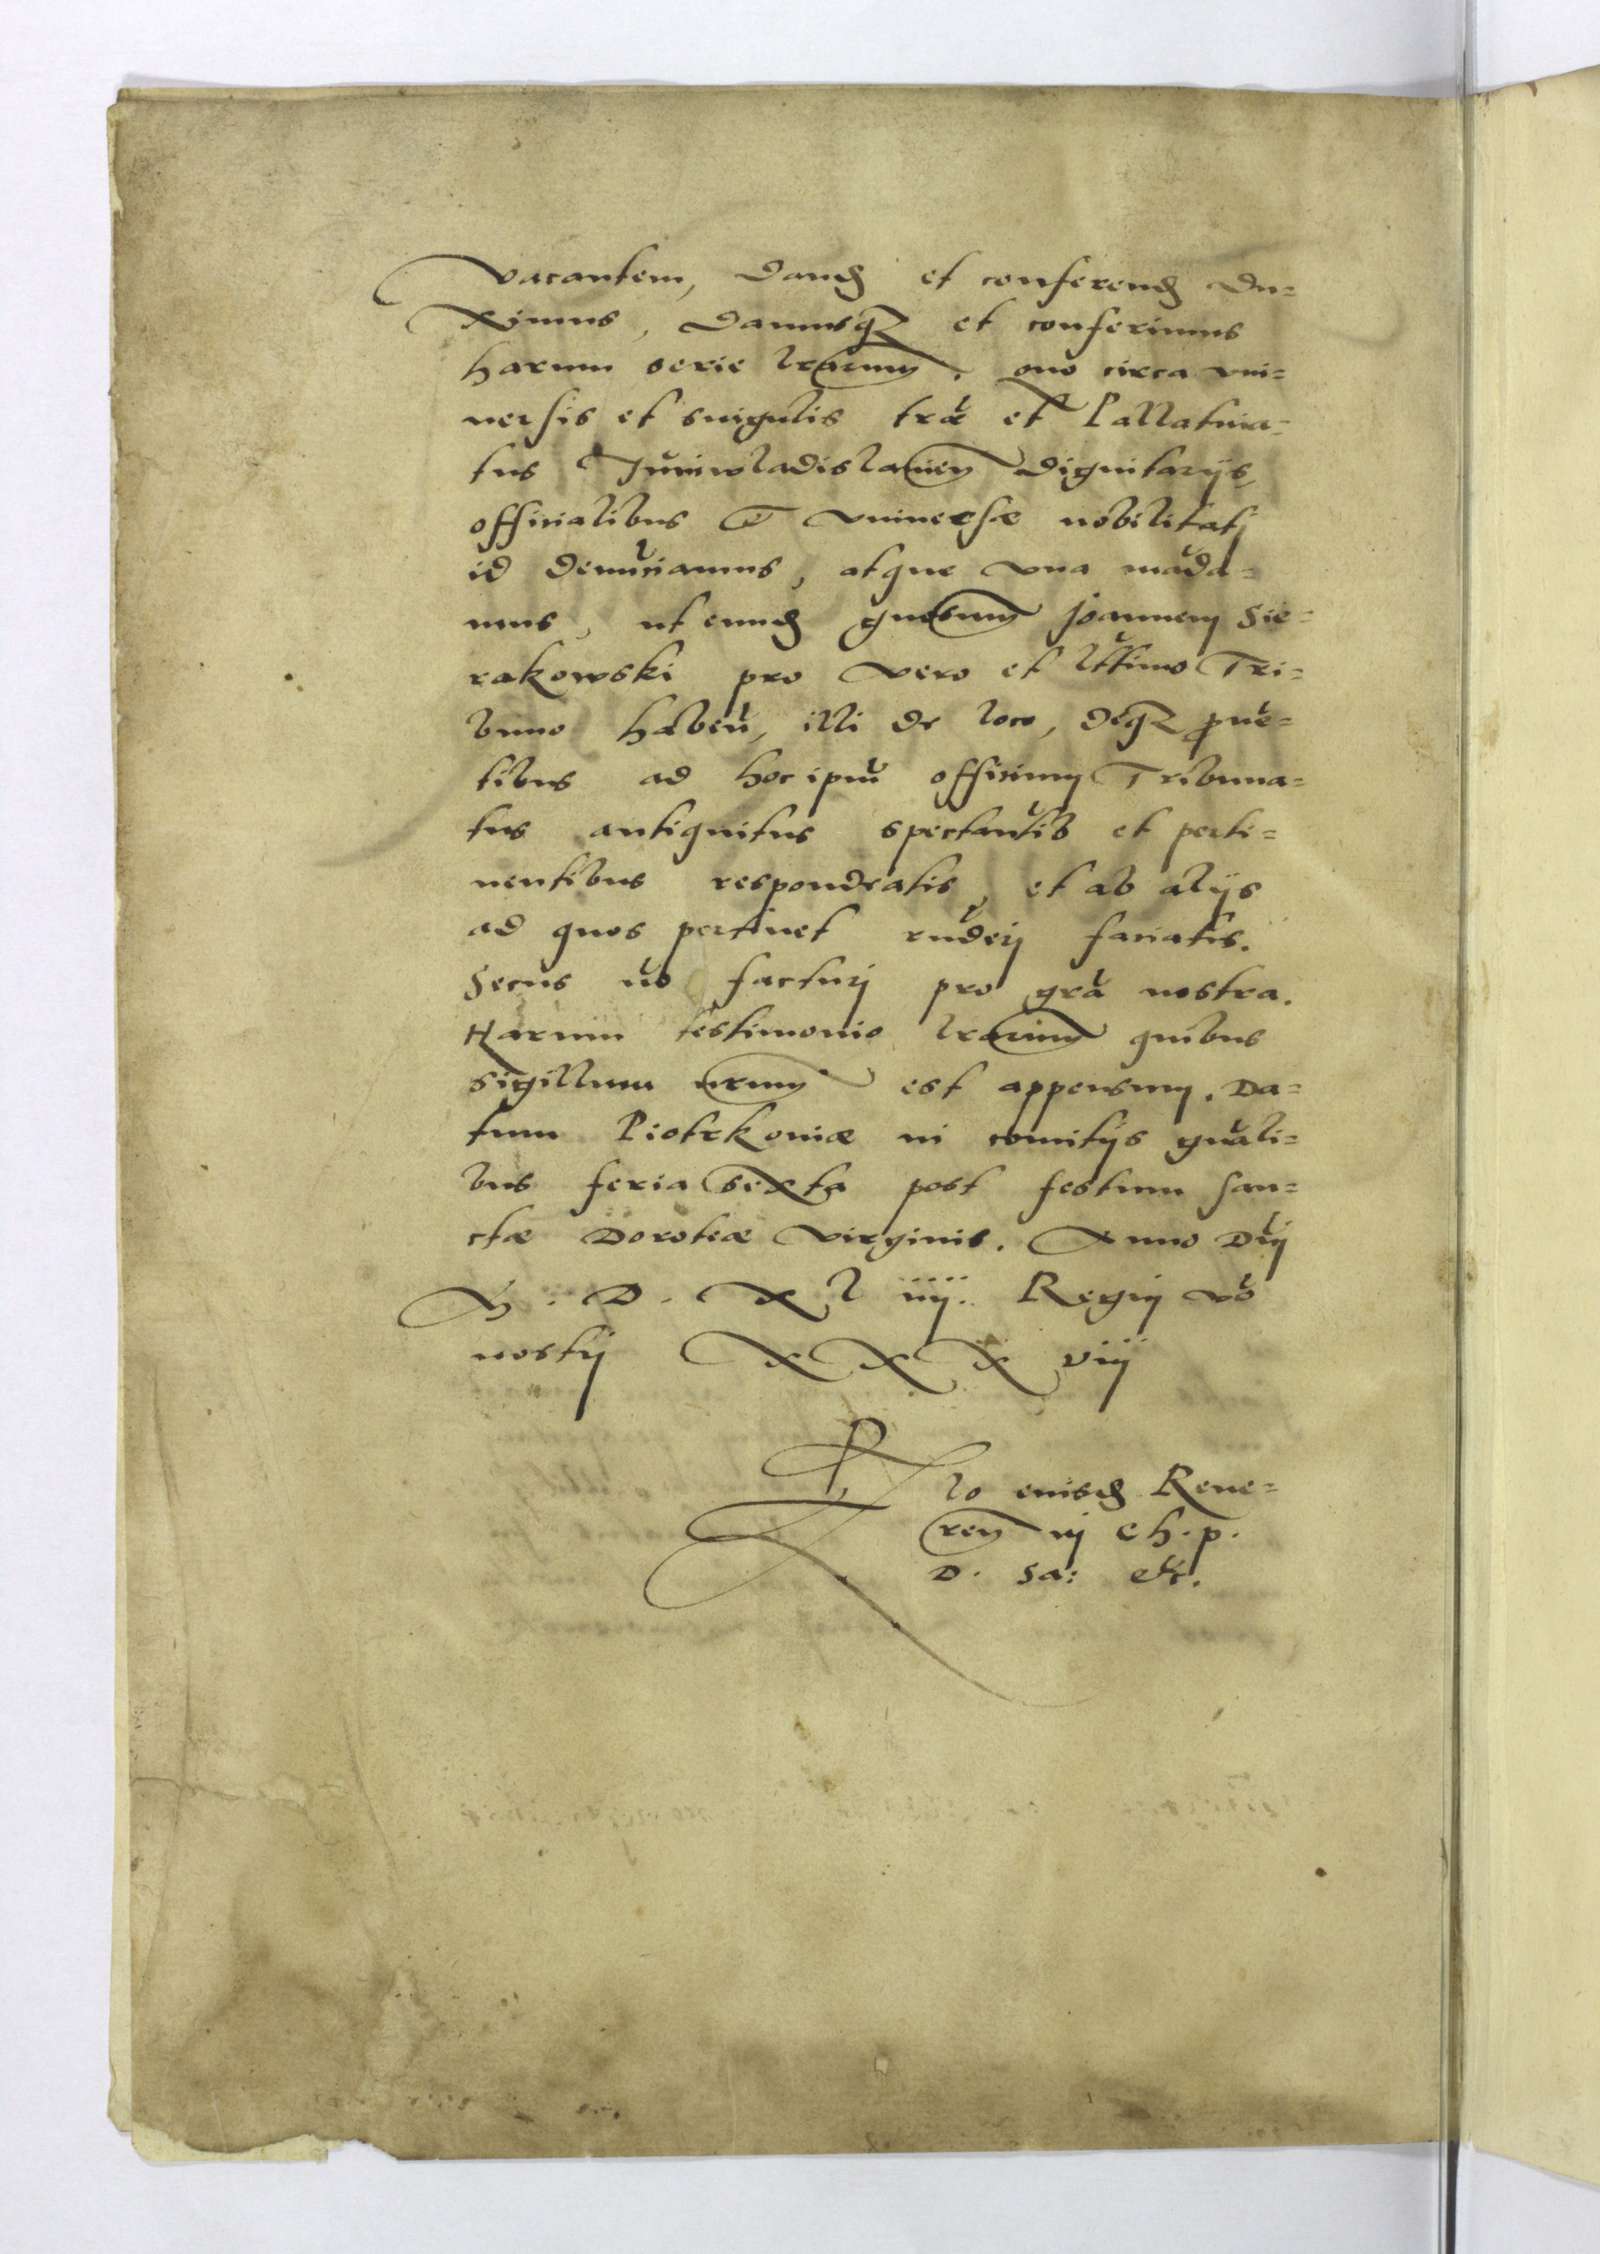 vacantem, dand et conferend du=
ximus, damusq et conferimus
harum serie lrarum. quo circa vni=
uersis et singulis træ et Pallatina=
tus Juniwladislauien dignitarijs,
officialibus & vniuersæ nobilitati
id denuciamus, atque vna mada=
mus, ut eund gnosum Joannem Sie=
rakowski pro vero et lttimo Tri=
buno habeu, illi de loco, deq proue=
tibus ad hoc ipm officium Tribuna=
tus antiquitus spectantib et perti=
nentibus respondeatis, et ab alijs
ad quos pertinet rnderi faciatis.
Secus no facturi pro gra nostra.
Harum testimonio lrarum quibus
sigillum nrum est appensum. Da=
tum Piotrkouiæ in comitijs gnali=
bus feria sexta post festum san=
ctæ Doroteæ virginis. Anno Dni
M. D. xl iiij. Regni vo
nostri xxxviij
Rlo eiusd Reue=
ren in Ch. p.
D. Sa: etc.